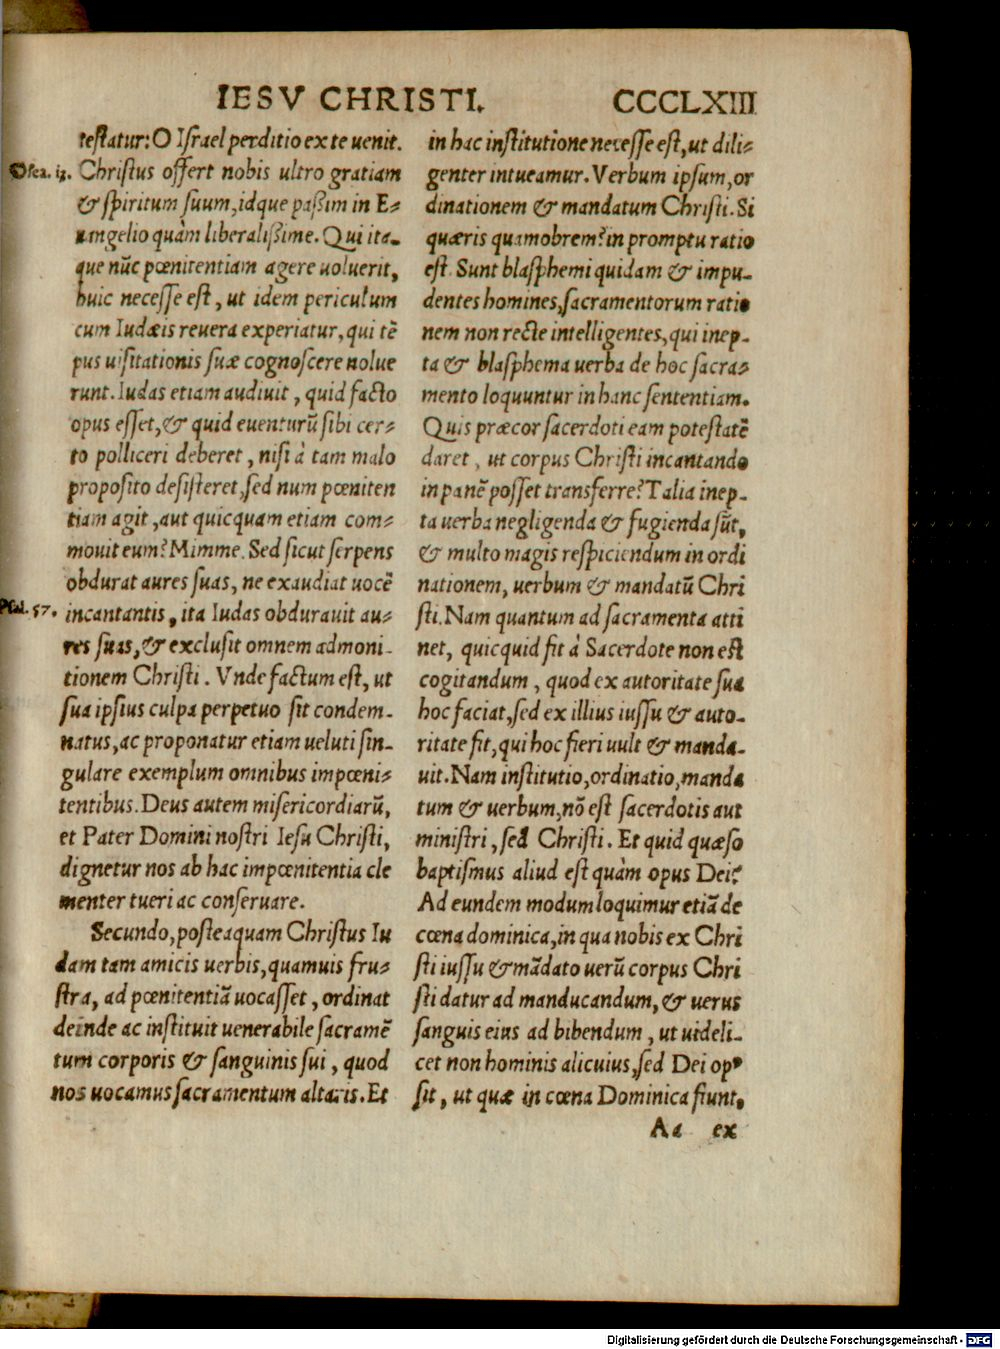 IESV CHRISTI. CCCLXIII
testatur: O Israel perditio ex te uenit.
Osea. 13. Christus offert nobis ultro gratiam
& spiritum suum, idque paßim in E-
uangelio quàm liberalißime. Qui ita-
que nūc pœnitentiam agere uoluerit,
huic necesse est, ut idem periculum
cum Iudæis reuera experiatur, qui tē
pus uisitationis suæ cognoscere nolue
runt. Iudas etiam audiuit, quid facto
opus esset, & quid euenturū sibi cer-
to polliceri deberet, nisi à tam malo
proposito desisteret, sed num pœniten
tiam agit, aut quicquam etiam com-
mouit eum? Mimme. Sed sicut serpens
obdurat aures suas, ne exaudiat uocē
Psal. 57. incantantis, ita Iudas obdurauit au-
res suas, & exclusit omnem admoni-
tionem Christi. Vnde factum est, ut
sua ipsius culpa perpetuo sit condem-
natus, ac proponatur etiam ueluti sin-
gulare exemplum omnibus impœni-
tentibus. Deus autem misericordiarū,
et Pater Domini nostri Iesu Christi,
dignetur nos ab hac impœnitentia cle
menter tueri ac conseruare.
Secundo, posteaquam Christus Iu
dam tam amicis uerbis, quamuis fru-
stra, ad pœnitentiā uocasset, ordinat
deinde ac instituit uenerabile sacramē
tum corporis & sanguinis sui, quod
nos uocamus sacramentum altaris. Et
in hac institutione necesse est, ut dili-
genter intueamur. Verbum ipsum, or
dinationem & mandatum Christi. Si
quæris quamobrem? in promptu ratio
est. Sunt blasphemi quidam & impu-
dentes homines, sacramentorum ratio
nem non recte intelligentes, qui inep-
ta & blasphema uerba de hoc sacra-
mento loquuntur in hanc sententiam.
Quis præcor sacerdoti eam potestatē
daret, ut corpus Christi incantando
in panē posset transferre? Talia inep-
ta uerba negligenda & fugienda sūt,
& multo magis respiciendum in ordi
nationem, uerbum & mandatū Chri
sti. Nam quantum ad sacramenta atti
net, quicquid fit à Sacerdote non est
cogitandum, quod ex autoritate sua
hoc faciat, sed ex illius iussu & auto-
ritate fit, qui hoc fieri uult & manda-
uit. Nam institutio, ordinatio, manda
tum & uerbum, nō est sacerdotis aut
ministri, sed Christi. Et quid quæso
baptismus aliud est quàm opus Dei?
Ad eundem modum loquimur etiā de
cœna dominica, in qua nobis ex Chri
sti iussu & mādato uerū corpus Chri
sti datur ad manducandum, & uerus
sanguis eius ad bibendum, ut uideli-
cet non hominis alicuius, sed Dei op9
sit, ut quæ in cœna Dominica fiunt,
Aa ex
Digitalisierung gefördert durch die Deutsche Forschungsgemeinschaft - DFG